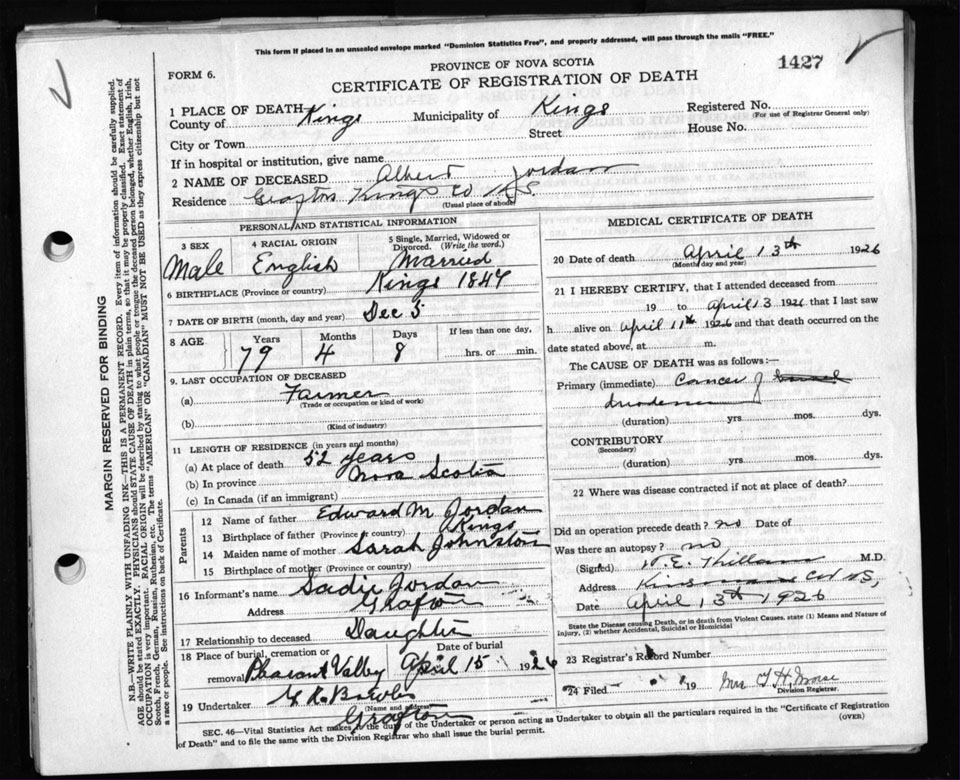 This form if placed in an unsealed envelope marked "Dominion Statistics Free", and properly addressed, will pass through the mails "FREE."
1427
FORM 6.
PROVINCE OF NOVA SCOTIA
CERTIFICATE OF REGISTRATION OF DEATH
1 PLACE OF DEATH
County of Kings Municipality of Kings Registered No.
(For use of Registrar General only)
City or Town Street House No.
If in hospital or institution, give name
2 NAME OF DECEASED Albert Jordan
Residence Grafton Kings Co N.S.
(Usual place of abode)
PERSONAL AND STATISTICAL INFORMATION
3 SEX 4 RACIAL ORIGIN 5 Single, Married, Widowed or Divorced. (Write the word.)
Male English Married
6 BIRTHPLACE (Province or country) Kings 1847
7 DATE OF BIRTH (month, day and year) Dec 5
8 AGE Years Months Days If less than one day,
79 4 8 hrs. or min.
9. LAST OCCUPATION OF DECEASED
(a) Farmer
(Trade or occupation or kind of work)
(b)
(Kind of industry)
11 LENGTH OF RESIDENCE (in years and months)
(a) At place of death 52 years
(b) In province Nova Scotia
(c) In Canada (if an immigrant)
Parents
12 Name of father Edward M Jordan
13 Birthplace of father (Province or country) Kings
14 Maiden name of mother Sarah Johnston
15 Birthplace of mother (Province or country)
16 Informant's name Sadie Jordan
Address Grafton
17 Relationship to deceased Daughter
18 Place of burial, cremation or removal Date of burial
Pleasant Valley April 15 1926
19 Undertaker
(Name and address)
Grafton
MEDICAL CERTIFICATE OF DEATH
20 Date of death April 13th 1926
(Month, day and year)
21 I HEREBY CERTIFY, that I attended deceased from
19 to April 13 1926 that I last saw
h alive on April 11th 1926 and that death occurred on the
date stated above, at m.
The CAUSE OF DEATH was as follows:—
Primary (immediate) Cancer of
duodenum
(duration) yrs. mos. dys.
CONTRIBUTORY
(Secondary)
(duration) yrs. mos. dys.
22 Where was disease contracted if not at place of death?
Did an operation precede death? no Date of
Was there an autopsy? no
(Signed) M.D.
Address N.S.
Date April 13th 1926
State the Disease causing Death, or in death from Violent Causes, state (1) Means and Nature of
Injury, (2) whether Accidental, Suicidal or Homicidal
23 Registrar's Record Number
24 Filed 19 Mrs
Division Registrar.
SEC. 46—Vital Statistics Act makes it the duty of the Undertaker or person acting as Undertaker to obtain all the particulars required in the "Certificate of Registration
of Death" and to file the same with the Division Registrar who shall issue the burial permit.
(OVER)
MARGIN RESERVED FOR BINDING
N.B.—WRITE PLAINLY WITH UNFADING INK—THIS IS A PERMANENT RECORD. Every item of information should be carefully supplied.
AGE should be stated EXACTLY. PHYSICIANS should STATE CAUSE OF DEATH in plain terms, so that it may be properly classified. Exact statement of
OCCUPATION is very important. RACIAL ORIGIN will be described by stating to what people or tongue the deceased person belonged, whether English, Irish,
Scotch, French, German, Russian, Ruthenian, etc. The terms "AMERICAN" OR "CANADIAN" MUST NOT BE USED as they express citizenship but not
a race or people. See instructions on back of Certificate.